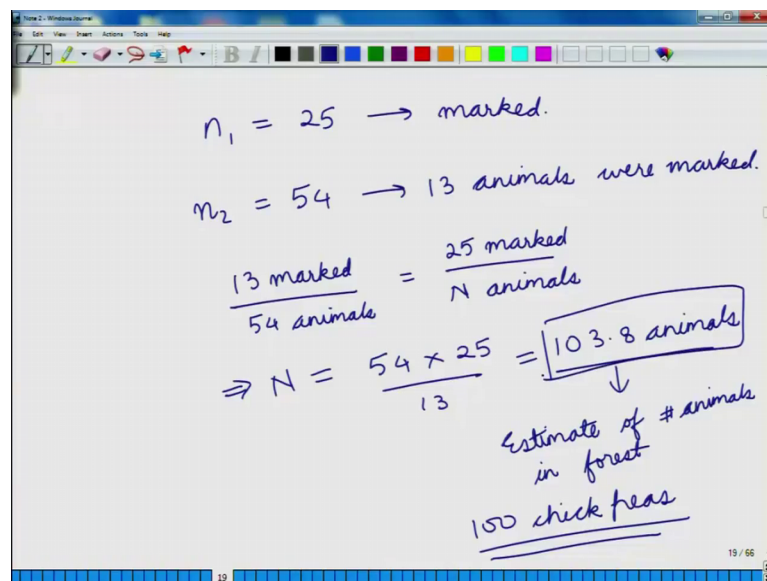 Note 2 - Windows Journal
File Edit View Insert Actions Tools Help
B I
n₁ = 25 → marked.
n₂ = 54 → 13 animals were marked.
13 marked / 54 animals = 25 marked / N animals
⇒ N = 54 × 25 / 13 = 103.8 animals
↓
Estimate of # animals
in forest
100 chick peas
19 / 66
19